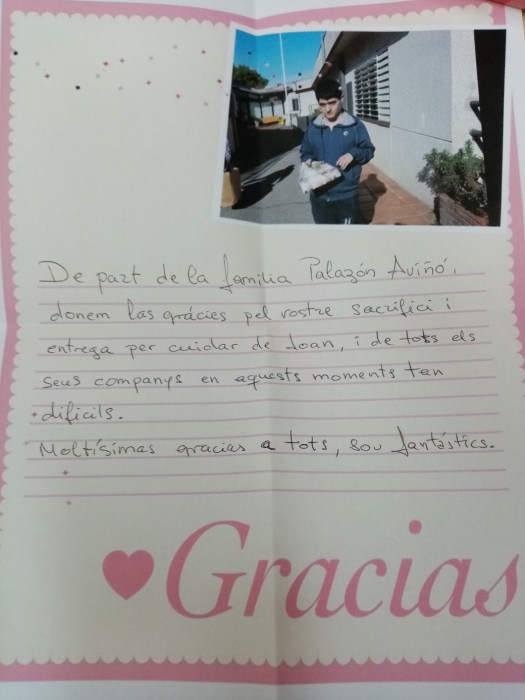 De part de la familia Palazón Aviñó,
donem las grácies pel vostre sacrifici i
entrega per cuidar de Joan, i de tots els
seus companys en aquests moments tan
dificils.
Moltísimas gracias a tots, sou fantástics.
Gracias